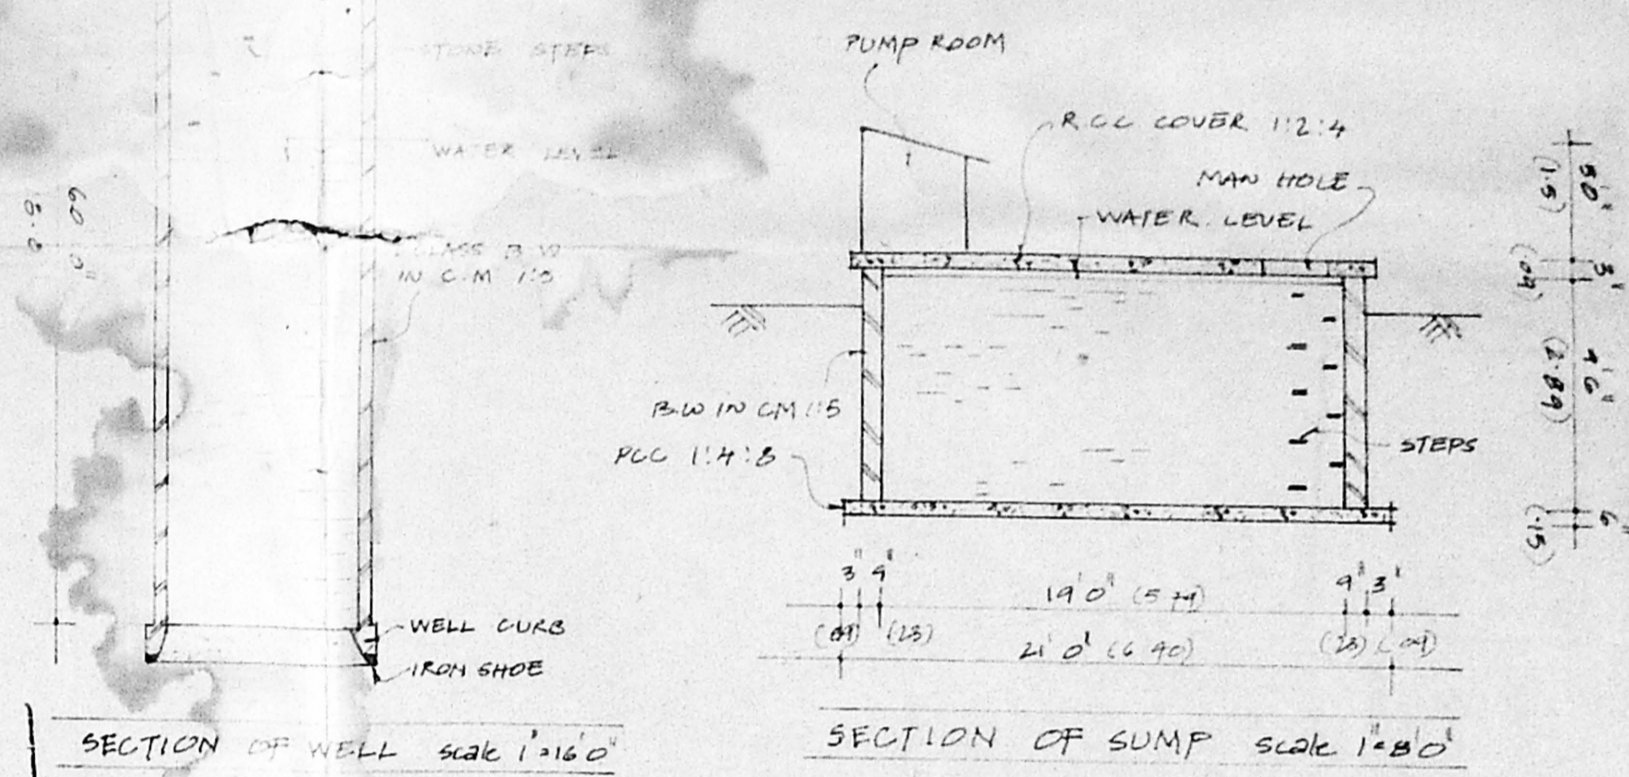 STONE STEPS
WATER LEVEL
60'0"
CLASS B.W
IN C.M 1:5
WELL CURB
IRON SHOE
SECTION OF WELL scale 1"=16'0"
PUMP ROOM
R.C.C COVER 1:2:4
MAN HOLE
WATER LEVEL
B.W IN CM 1:5
PCC 1:4:8
STEPS
5'0"
(1.5)
3"
(.09)
9'6"
(2.89)
6"
(.15)
3" 9" 19'0" (5.79) 9" 3"
(.09) (.23) 21'0" (6.40) (.23) (.09)
SECTION OF SUMP scale 1"=8'0"